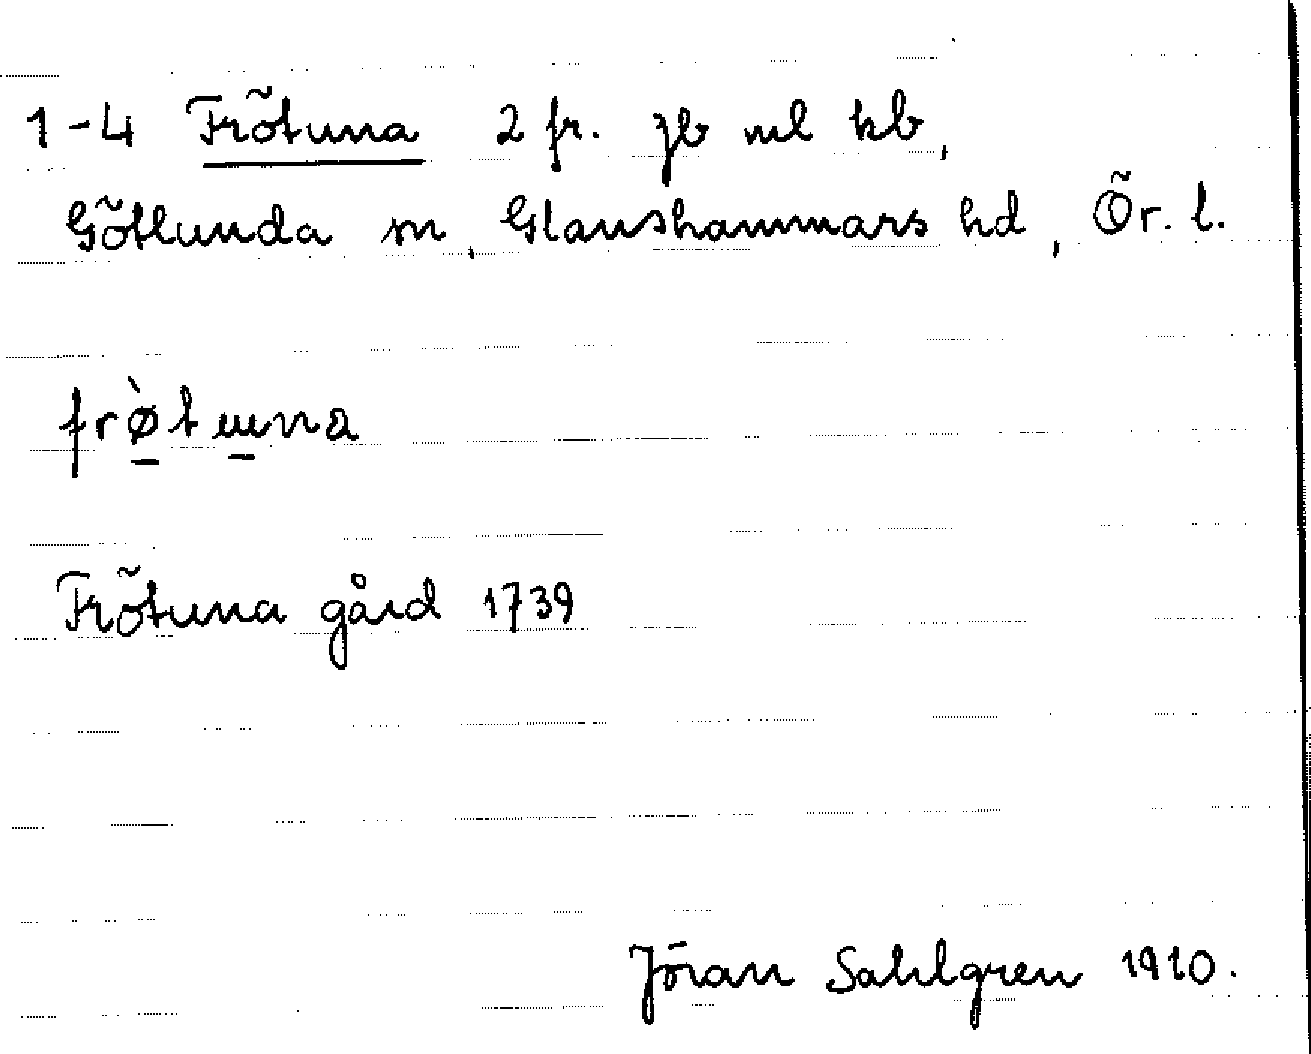 1-4 Frötuna 2 fr. jb ml kb,
Götlunda sn, Glanshammars hd, Ör. l.
frø̀tɯna
Frötuna gård 1739
Jöran Sahlgren 1910.